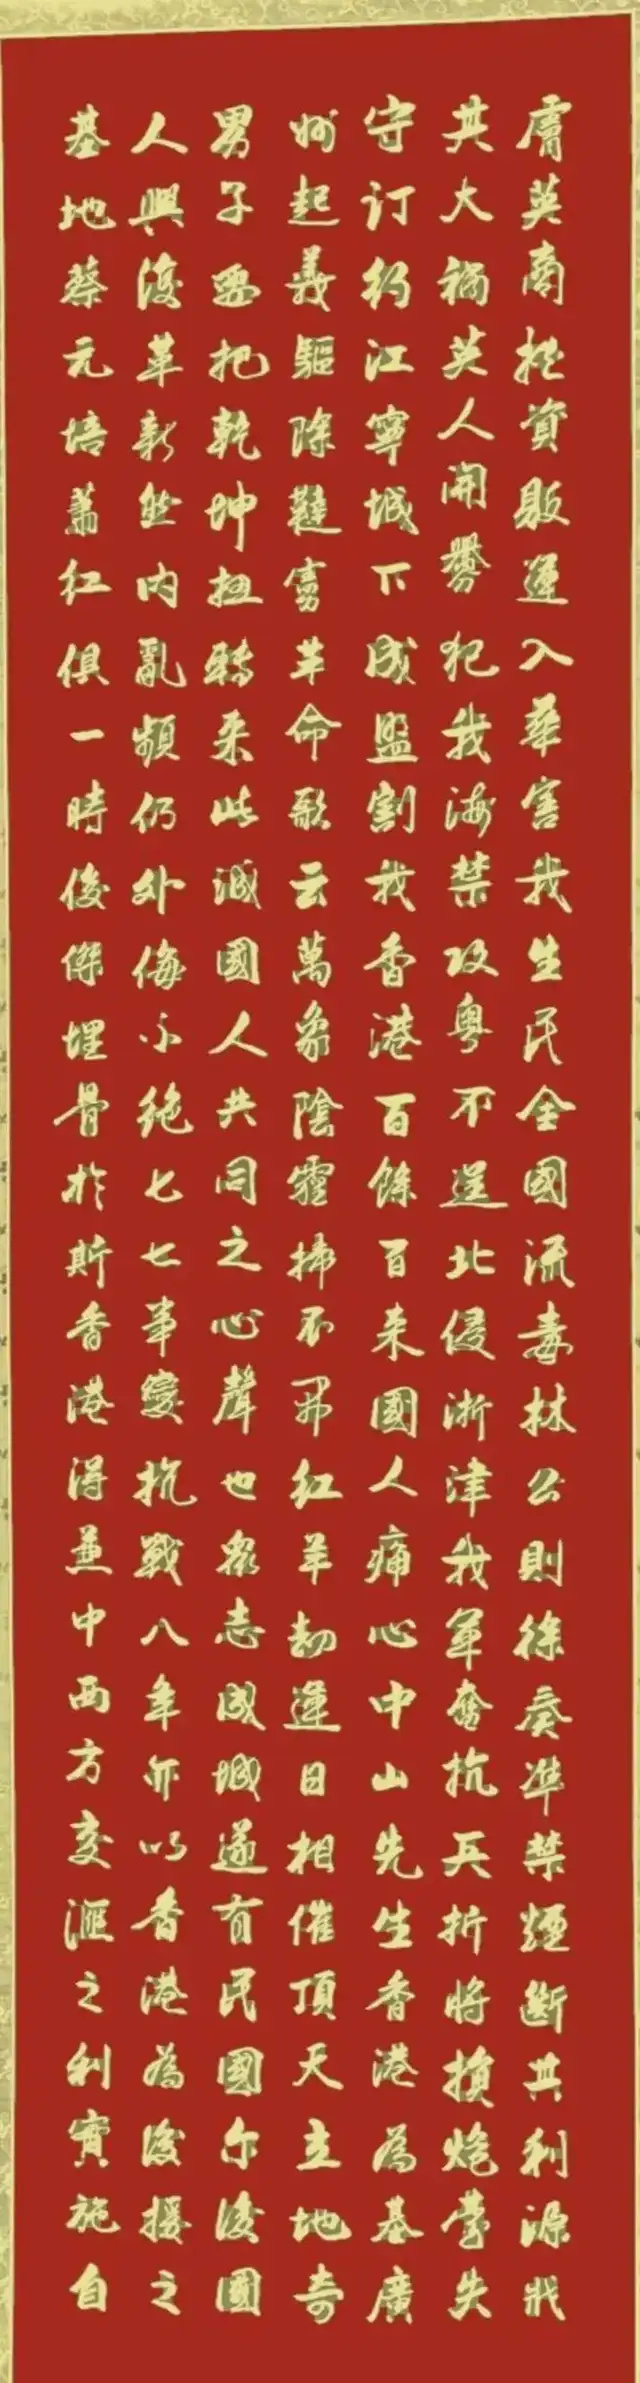 膚英商資販運入華害我生民全國流毒林公則徐奏準禁煙斷其利源戕
其大禍英人開釁犯我海禁攻粵不逞北侵浙津我軍奮抗兵折將損炮臺失
守订約江寧城下成盟割我香港百餘百来國人痛心中山先生香港為基廣
州起義驅除韃虜革命歌云萬象陰霾掃不開紅羊劫運日相催頂天立地奇
男子要把乾坤扭轉来此誠國人共同之心聲也眾志成城遂有民國尔後國
人興復革新然内亂頻仍外侮不絕七七事變抗戰八年亦以香港為後援之
基地蔡元培蕭紅俱一時俊傑埋骨於斯香港得兼中西方交滙之利實施自